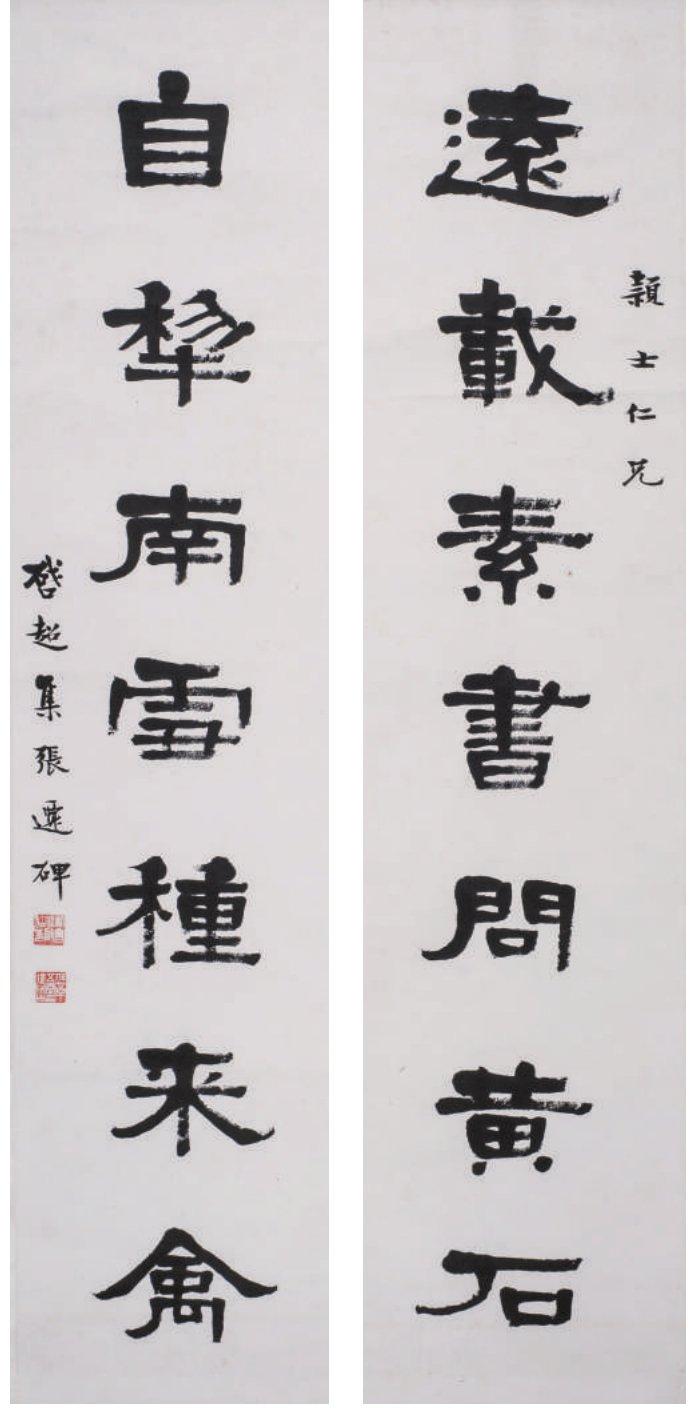 穎士仁兄
遠載素書問黄石
自犂南雪種来禽
啓超集張遷碑